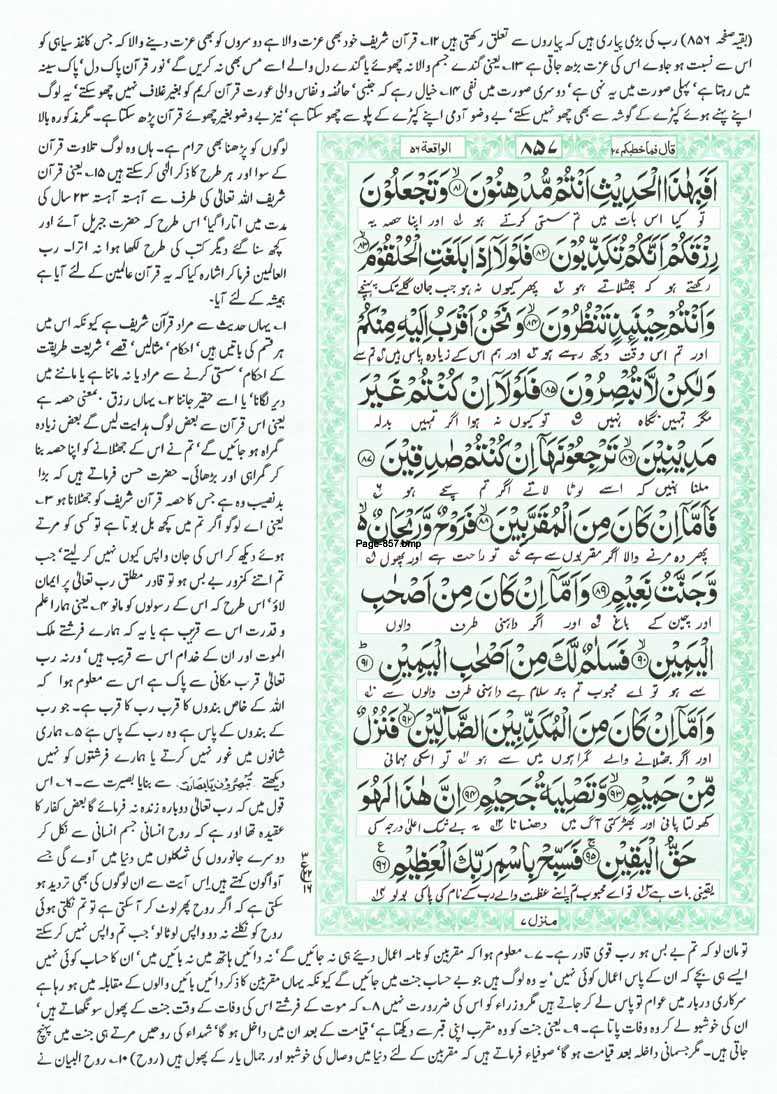 (بقیہ صفحہ ۸۵۶) رب کی بڑی پیاری ہیں کہ پیاروں سے تعلق رکھتی ہیں ۱۲؎ قرآن شریف خود بھی عزت والا ہے دوسروں کو بھی عزت دینے والا کہ جس کاغذ سیاہی کو
اس سے نسبت ہو جاوے اس کی عزت بڑھ جاتی ہے ۱۳؎ یعنی گندے جسم والا نہ چھوئے یا گندے دل والے اسے مس بھی نہ کریں گے' نور قرآن پاک دل' پاک سینہ
میں رہتا ہے' پہلی صورت میں یہ نہی ہے' دوسری صورت میں نفی ۱۴؎ خیال رہے کہ جنبی' حائضہ و نفاس والی عورت قرآن کریم کو بغیر غلاف نہیں چھو سکتے' یہ لوگ
اپنے پہنے ہوئے کپڑے کے گوشہ سے بھی چھو نہیں سکتے' بے وضو آدمی اپنے کپڑے کے پلو سے چھو سکتا ہے' نیز بے وضو بغیر چھوئے قرآن پڑھ سکتا ہے۔ مگر مذکورہ بالا
لوگوں کو پڑھنا بھی حرام ہے۔ ہاں وہ لوگ تلاوت قرآن
کے سوا اور ہر طرح کا ذکر الٰہی کر سکتے ہیں ۱۵؎ یعنی قرآن
شریف اللہ تعالیٰ کی طرف سے آہستہ آہستہ ۲۳ سال کی
مدت میں اتارا گیا' اس طرح کہ حضرت جبریل آئے اور
کچھ سنا گئے دیگر کتب کی طرح لکھا ہوا نہ اترا۔ رب
العالمین فرما کر اشارہ کیا کہ یہ قرآن عالمین کے لئے آیا ہے
ہمیشہ کے لئے آیا۔
۱؎ یہاں حدیث سے مراد قرآن شریف ہے کیونکہ اس میں
ہر قسم کی باتیں ہیں' احکام' مثالیں' قصے' شریعت طریقت
کے احکام' سستی کرنے سے مراد یا نہ ماننا ہے یا ماننے میں
دیر لگانا' یا اسے حقیر جاننا ۲؎ یہاں رزق بمعنی حصہ ہے
یعنی اس قرآن سے بعض لوگ ہدایت لیں گے بعض زیادہ
گمراہ ہو جائیں گے' تم نے اس کے جھٹلانے کو اپنا حصہ بنا
کر گمراہی اور بڑھائی۔ حضرت حسن فرماتے ہیں کہ بڑا
بدنصیب وہ ہے جس کا حصہ قرآن شریف کو جھٹلانا ہو ۳؎
یعنی اے لوگو اگر تم میں کچھ بل بوتا ہے تو کسی کو مرتے
ہوئے دیکھ کر اس کی جان واپس کیوں نہیں کر لیتے' جب
تم اتنے کمزور بے بس ہو تو قادر مطلق رب تعالیٰ پر ایمان
لاؤ' اس طرح کہ اس کے رسولوں کو مانو ۴؎ یعنی ہمارا علم
و قدرت اس سے قریب ہے یا یہ کہ ہمارے فرشتے ملک
الموت اور ان کے خدام اس سے قریب ہیں' ورنہ رب
تعالیٰ قرب مکانی سے پاک ہے اس سے معلوم ہوا کہ
اللہ کے خاص بندوں کا قرب رب کا قرب ہے۔ جو رب
کے بندوں کے پاس ہے وہ رب کے پاس ہے ۵؎ ہماری
شانوں میں غور نہیں کرتے یا ہمارے فرشتوں کو نہیں
دیکھتے تبصرون یا بصارت سے بنا یا بصیرت سے۔ ۶؎ اس
قول میں کہ رب تعالیٰ دوبارہ زندہ نہ فرمائے گا بعض کفار کا
عقیدہ تھا اور ہے کہ روح انسانی جسم انسانی سے نکل کر
دوسرے جانوروں کی شکلوں میں دنیا میں آوے گی جسے
آواگون کہتے ہیں اس آیت سے ان لوگوں کی بھی تردید ہو
سکتی ہے کہ اگر روح پھر لوٹ کر آ سکتی ہے تو تم نکلتی ہوئی
روح کو نکلنے نہ دو واپس لوٹا لو' جب تم واپس نہیں کر سکتے
قال فما خطبکم ۲۷
۸۵۷
الواقعۃ ۵۶
اَفَبِهٰذَا الْحَدِيْثِ اَنْتُمْ مُّدْهِنُوْنَ ﴿۸۱﴾ وَتَجْعَلُوْنَ
تو کیا اس بات میں تم سستی کرتے ہو اور اپنا حصہ یہ
رِزْقَكُمْ اَنَّكُمْ تُكَذِّبُوْنَ ﴿۸۲﴾ فَلَوْلَاۤ اِذَا بَلَغَتِ الْحُلْقُوْمَ ﴿۸۳﴾
رکھتے ہو کہ جھٹلاتے ہو پھر کیوں نہ ہو جب جان گلے تک پہنچے
وَاَنْتُمْ حِيْنَئِذٍ تَنْظُرُوْنَ ﴿۸۴﴾ وَنَحْنُ اَقْرَبُ اِلَيْهِ مِنْكُمْ
اور تم اس وقت دیکھ رہے ہو اور ہم اس کے زیادہ پاس ہیں تم سے
وَلٰكِنْ لَّا تُبْصِرُوْنَ ﴿۸۵﴾ فَلَوْلَاۤ اِنْ كُنْتُمْ غَيْرَ
مگر تمہیں نگاہ نہیں تو کیوں نہ ہوا اگر تمہیں بدلہ
مَدِيْنِيْنَ ﴿۸۶﴾ تَرْجِعُوْنَهَاۤ اِنْ كُنْتُمْ صٰدِقِيْنَ ﴿۸۷﴾
ملنا نہیں کہ اسے لوٹا لاتے اگر تم سچے ہو
فَاَمَّاۤ اِنْ كَانَ مِنَ الْمُقَرَّبِيْنَ ﴿۸۸﴾ فَرَوْحٌ وَّرَيْحَانٌ
Page-857.bmp
پھر وہ مرنے والا اگر مقربوں سے ہے تو راحت ہے اور پھول
وَّجَنَّتُ نَعِيْمٍ ﴿۸۹﴾ وَاَمَّاۤ اِنْ كَانَ مِنْ اَصْحٰبِ
اور چین کے باغ اور اگر داہنی طرف والوں
الْيَمِيْنِ ﴿۹۰﴾ فَسَلٰمٌ لَّكَ مِنْ اَصْحٰبِ الْيَمِيْنِ ﴿۹۱﴾
سے ہو تو اے محبوب تم پر سلام ہے داہنی طرف والوں سے
وَاَمَّاۤ اِنْ كَانَ مِنَ الْمُكَذِّبِيْنَ الضَّآلِّيْنَ ﴿۹۲﴾ فَنُزُلٌ
اور اگر جھٹلانے والے گمراہوں میں سے ہو تو اسکی مہمانی
مِّنْ حَمِيْمٍ ﴿۹۳﴾ وَّتَصْلِيَةُ جَحِيْمٍ ﴿۹۴﴾ اِنَّ هٰذَا لَهُوَ
کھولتا پانی اور بھڑکتی آگ میں دھنسانا یہ بے شک اعلیٰ درجہ کی
حَقُّ الْيَقِيْنِ ﴿۹۵﴾ فَسَبِّحْ بِاسْمِ رَبِّكَ الْعَظِيْمِ ﴿۹۶﴾
یقینی بات ہے تو اے محبوب تم اپنے عظمت والے رب کے نام کی پاکی بولو
منزل ۷
تو مان لو کہ تم بے بس ہو رب قوی قادر ہے۔ ۷؎ معلوم ہوا کہ مقربین کو نامہ اعمال دیئے ہی نہ جائیں گے' نہ دائیں ہاتھ میں نہ بائیں میں' ان کا حساب کوئی نہیں
ایسے ہی بچے کہ ان کے پاس اعمال کوئی نہیں' یہ وہ لوگ ہیں جو بے حساب جنت میں جائیں گے کیونکہ یہاں مقربین کا ذکر دائیں بائیں والوں کے مقابلہ میں ہو رہا ہے
سرکاری دربار میں عوام تو پاس لے کر جاتے ہیں مگر وزراء کو اس کی ضرورت نہیں ۸؎ کہ موت کے فرشتے اس کی وفات کے وقت جنت کے پھول سونگھاتے ہیں'
ان کی خوشبو لے کر وہ وفات پاتا ہے۔ ۹؎ یعنی جنت کو وہ مقرب اپنی قبر سے دیکھتا ہے' قیامت کے بعد ان میں داخل ہو گا' شہداء کی روحیں مرتے ہی جنت میں پہنچ
جاتی ہیں۔ مگر جسمانی داخلہ بعد قیامت ہو گا' صوفیاء فرماتے ہیں کہ مقربین کے لئے دنیا میں وصال کی خوشبو اور جمال یار کے پھول ہیں (روح) ۱۰؎ روح البیان نے